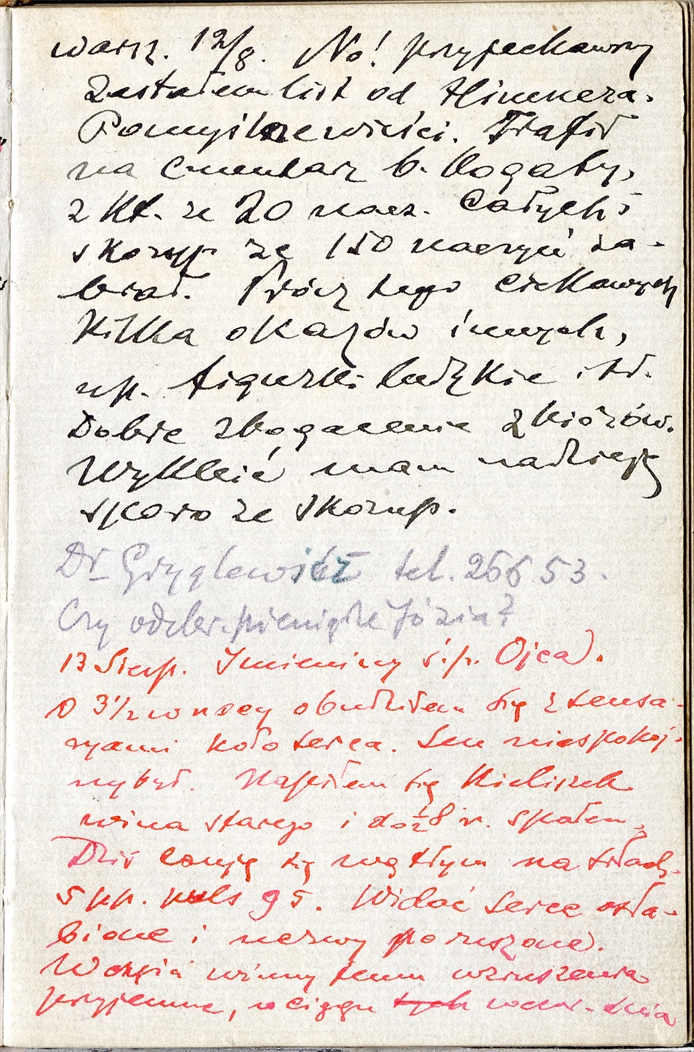 warsz. 12/8. No! przyjechawszy
zastałem list od Himnera.
Pomyślne wieści. Trafił
na cmentarz b. bogaty,
z kt. ze 20 nacz. całych i
skorup ze 150 naczyń za-
brał. Prócz tego ciekawych
kilka okazów innych,
np. figurki ludzkie itd.
Dobre zbogacenie zbiorów.
Wykleić mam nadzieję
sporo ze skorup.
Dr Gryglewicz tel. 266.53.
Czy odebr. pieniądze Józia?
13 Sierp. Imieniny ś.p. Ojca.
O 3½ w nocy obudziłem się z sensa-
cyami koło serca. Sen niespokoj-
ny był. Napiłem się kieliszek
wina starego i do 8 r. spałem.
Dziś czuję się wątłym na siłach,
5 pp. puls 95. Widać serce osła-
bione i nerwy poruszone.
Wczoraj winny temu wzruszenia
przyjemne, w ciągu wczor. dnia